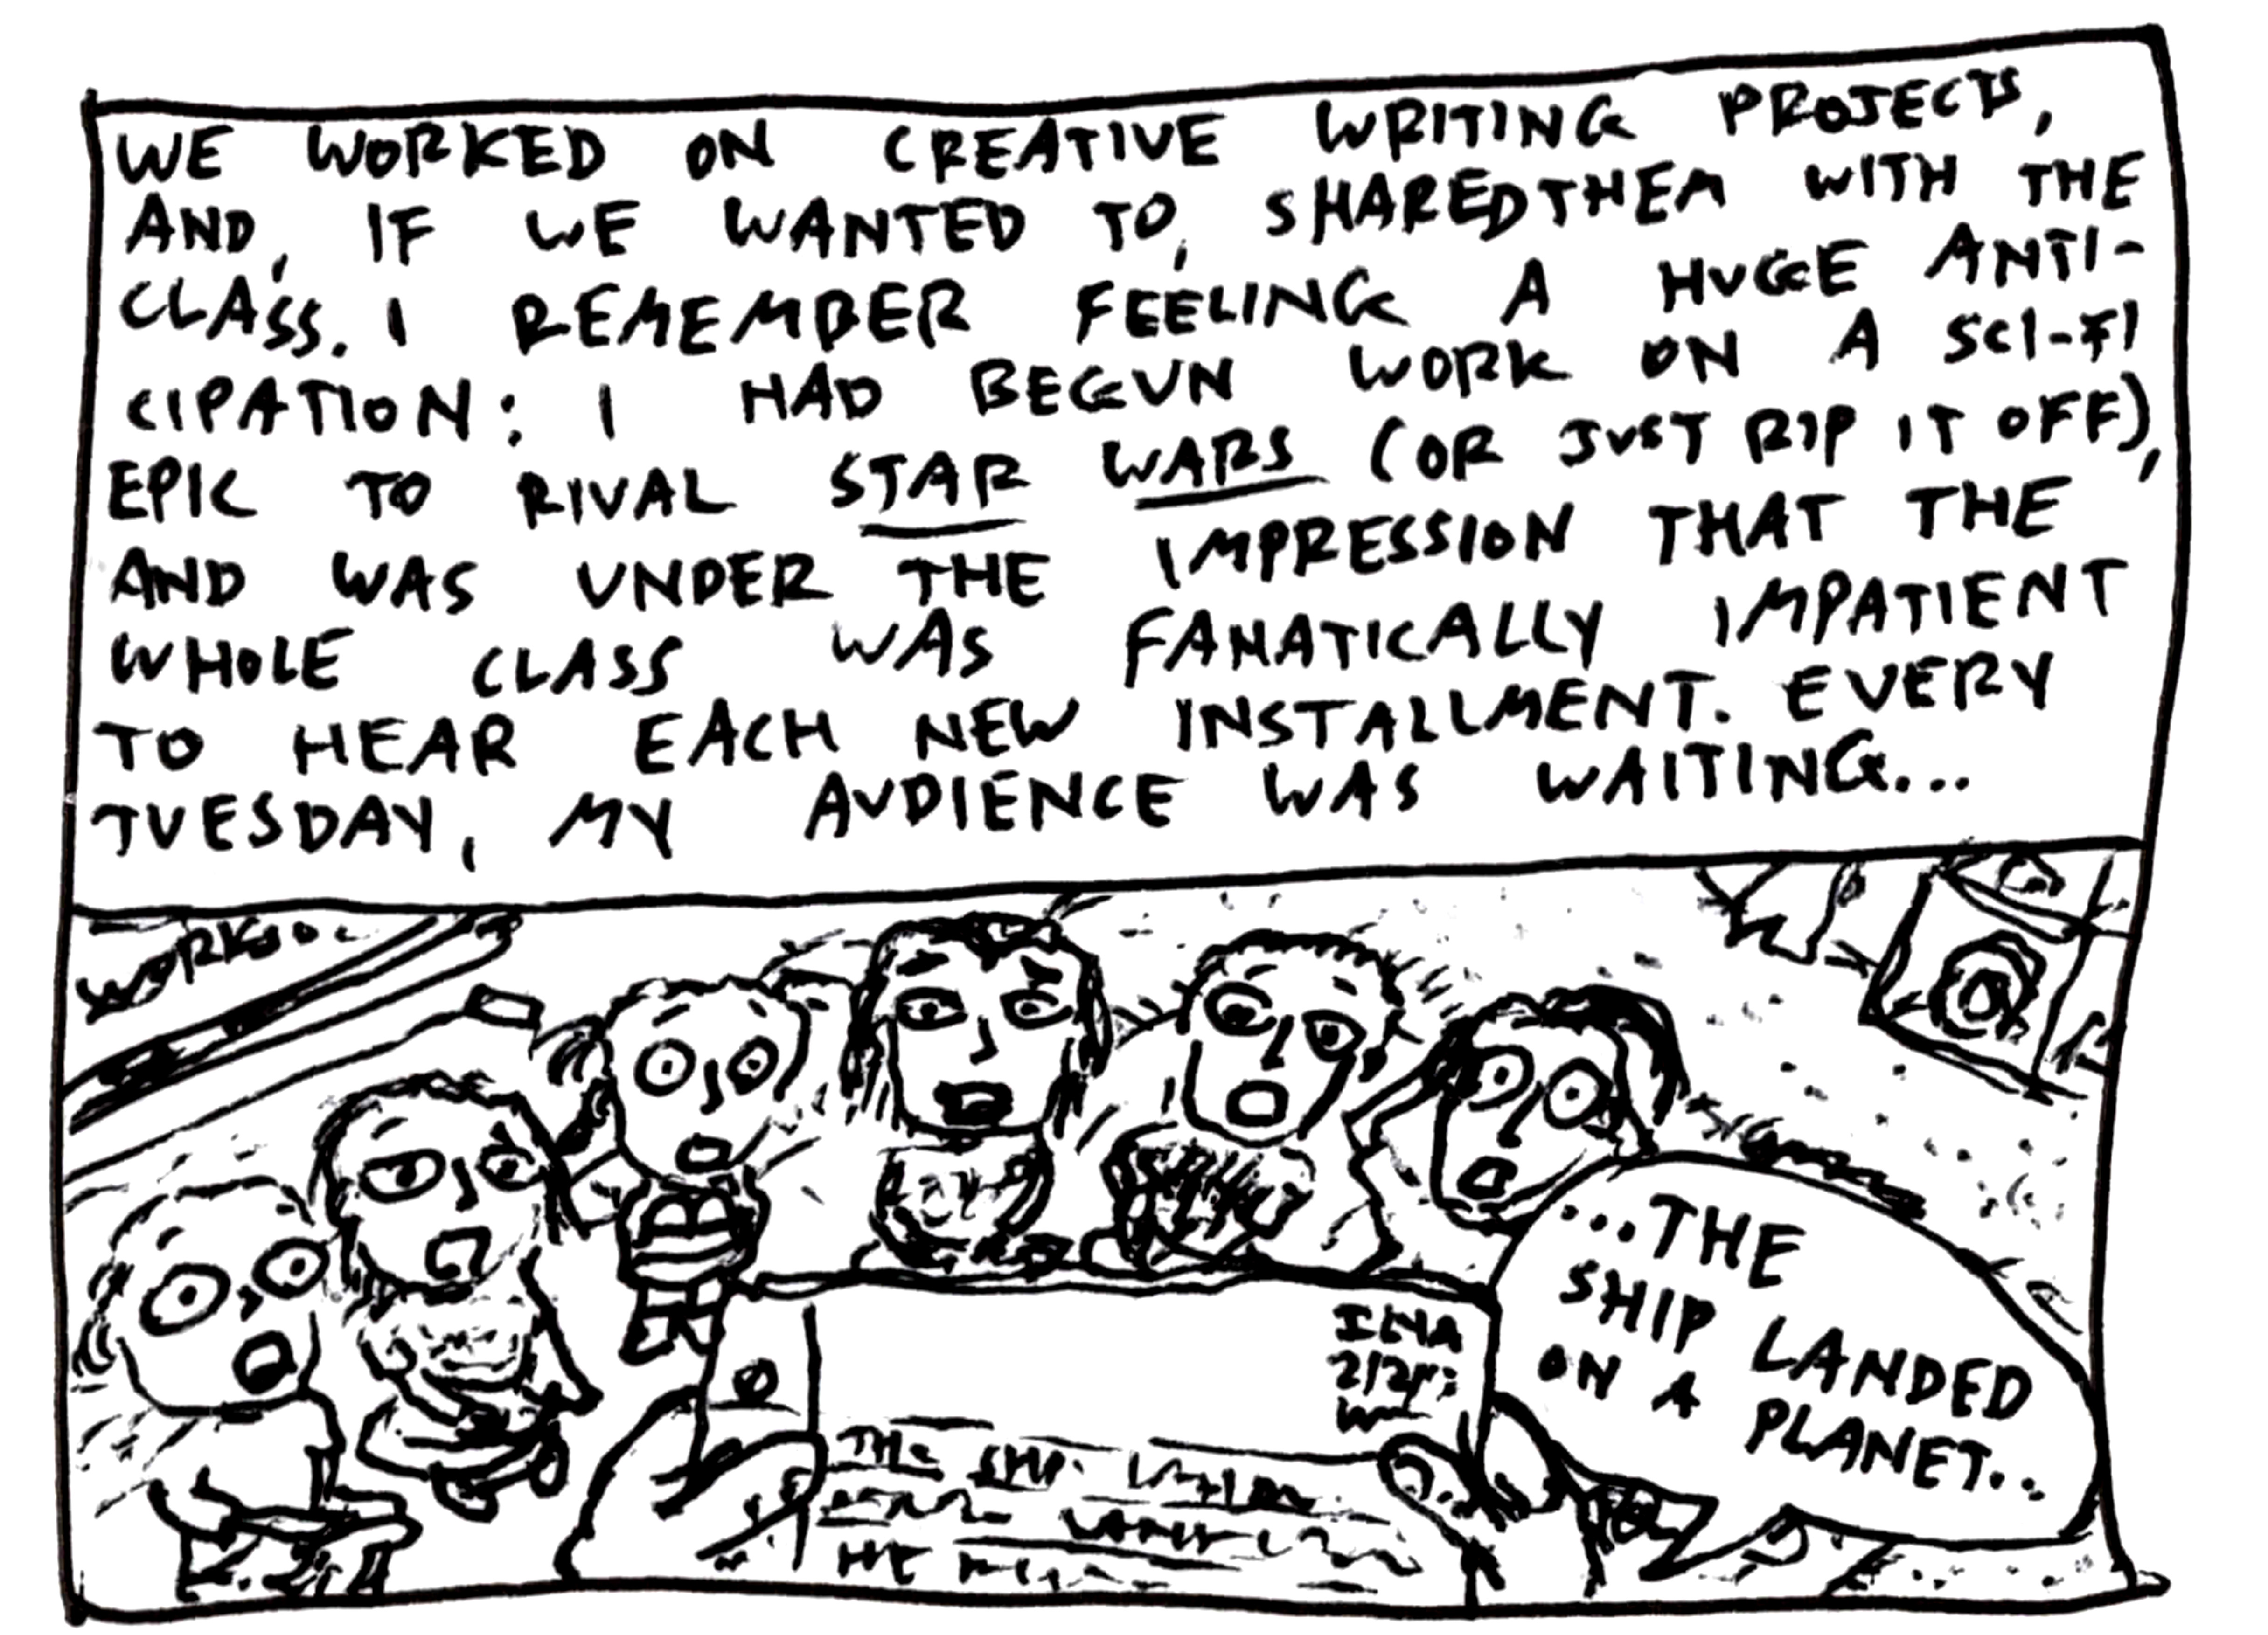 WE WORKED ON CREATIVE WRITING PROJECTS,
AND, IF WE WANTED TO, SHARED THEM WITH THE
CLASS. I REMEMBER FEELING A HUGE ANTI-
CIPATION: I HAD BEGUN WORK ON A SCI-FI
EPIC TO RIVAL STAR WARS (OR JUST RIP IT OFF),
AND WAS UNDER THE IMPRESSION THAT THE
WHOLE CLASS WAS FANATICALLY IMPATIENT
TO HEAR EACH NEW INSTALLMENT. EVERY
TUESDAY, MY AUDIENCE WAS WAITING...
...THE
SHIP LANDED
ON A PLANET...
THE SHIP
HE